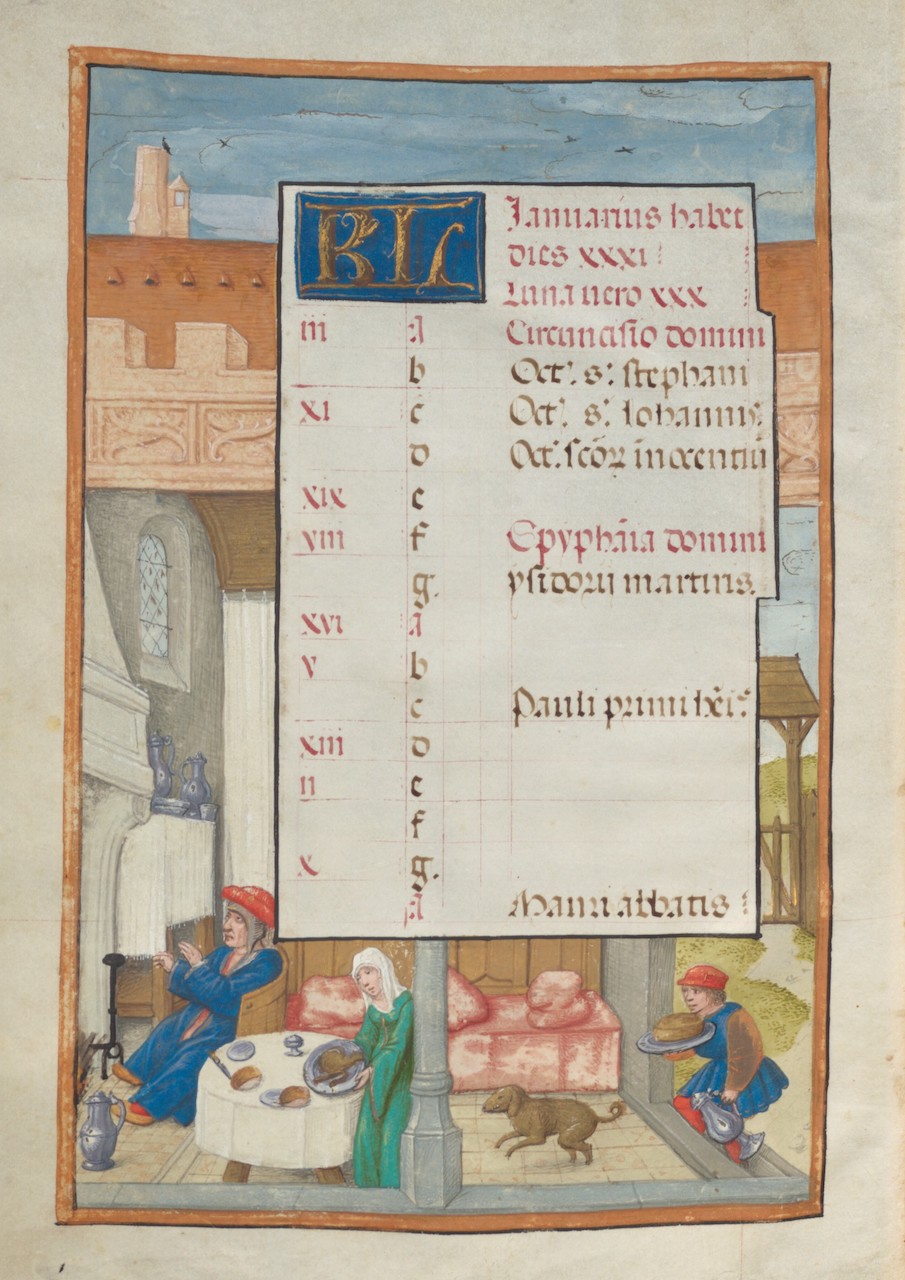 KL Januarius habet
dies xxxi
Luna vero xxx
iii A Circuncisio domini
b Oct. s. stephani
xi c Oct. s. Johannis
d Oct. scōꝝ inocentiū
xix e
viii f Epyphāia domini
g. ysidorii martiris
xvi A
v b
c Pauli primi hēi.
xiii d
ii e
f
x g.
A Mauri abbatis